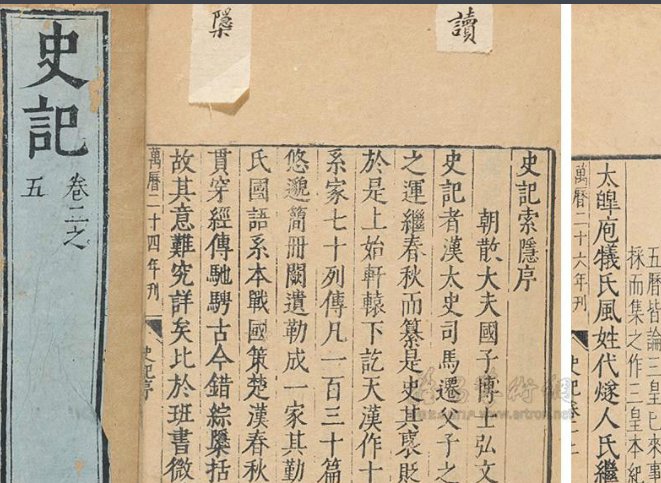 史記
卷二之
五
讀
櫽
史記索隱序
朝散大夫國子博士弘文
史記者漢太史司馬遷父子之
之運繼春秋而纂是史其褒貶
於是上始軒轅下訖天漢作十
系家七十列傳凡一百三十篇
悠邈簡冊闕遺勒成一家其勤
氏國語系本戰國策楚漢春秋
貫穿經傳馳騁古今錯綜櫽括
故其意難究詳矣比於班書微
萬曆二十四年刊
史記序
五曆皆論三皇已來事
採而集之作三皇本紀
太皥庖犧氏風姓代燧人氏繼
萬曆二十六年刊
史記卷